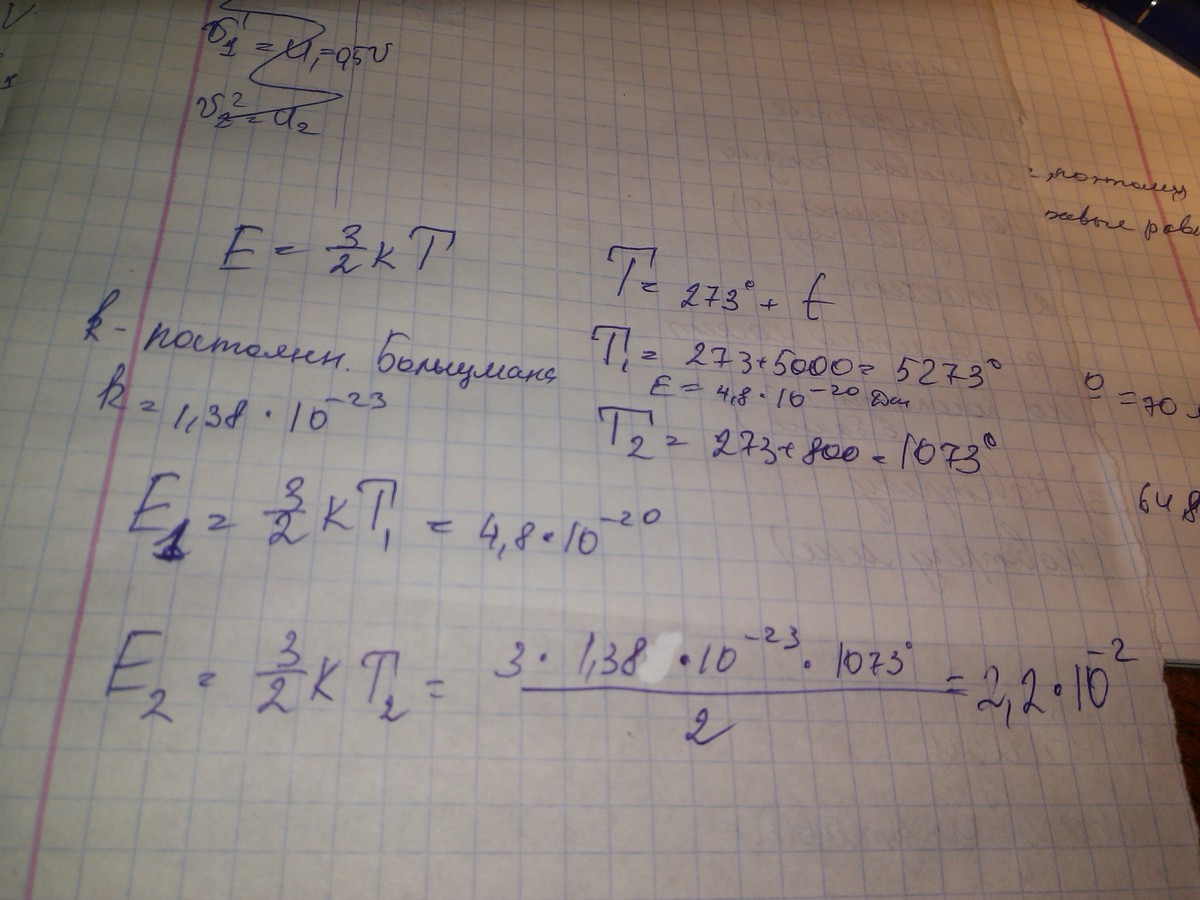 v₁' = u₁ = 0,5v
v₂² = u₂
E = 3/2 k T
T = 273° + t
k - постоянн. Больцмана
k = 1,38 · 10⁻²³
T₁ = 273 + 5000 = 5273°
E = 4,8 · 10⁻²⁰ Дж
T₂ = 273 + 800 = 1073°
E₁ = 3/2 k T₁ = 4,8 · 10⁻²⁰
E₂ = 3/2 k T₂ = (3 · 1,38 · 10⁻²³ · 1073°)/2 = 2,2 · 10⁻²
поэтому
= 70
648